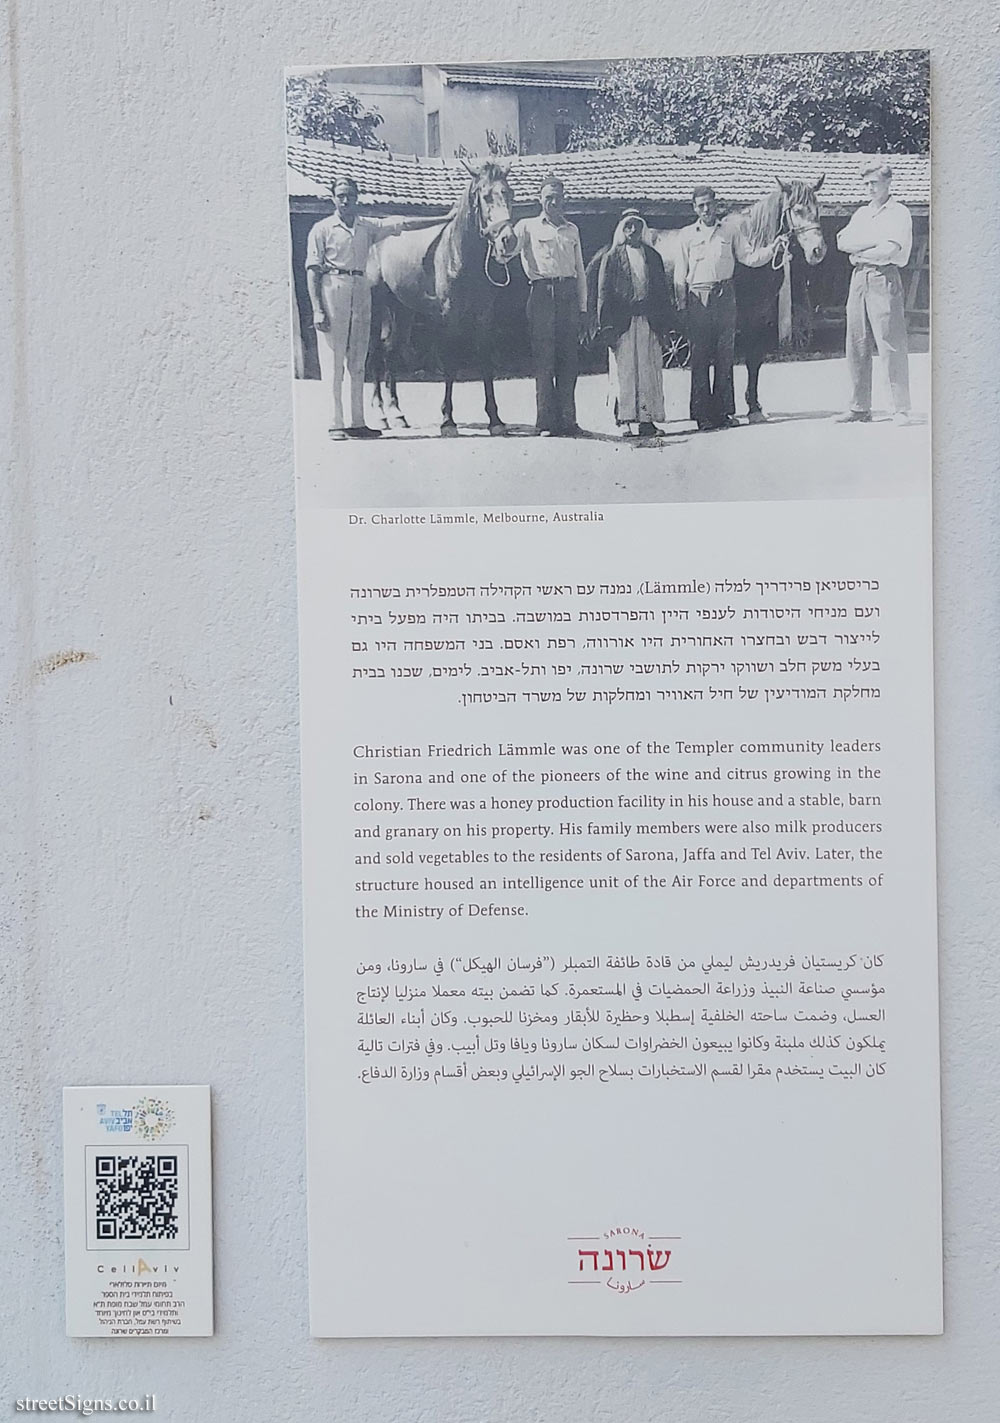 Dr. Charlotte Lämmle, Melbourne, Australia
כריסטיאן פרידריך למלה (Lämmle), נמנה עם ראשי הקהילה הטמפלרית בשרונה
ועם מניחי היסודות לענפי היין והפרדסנות במושבה. בביתו היה מפעל ביתי
לייצור דבש ובחצרו האחורית היו אורווה, רפת ואסם. בני המשפחה היו גם
בעלי משק חלב ושווקו ירקות לתושבי שרונה, יפו ותל-אביב. לימים, שכנו בבית
מחלקת המודיעין של חיל האוויר ומחלקות של משרד הביטחון.
Christian Friedrich Lämmle was one of the Templer community leaders
in Sarona and one of the pioneers of the wine and citrus growing in the
colony. There was a honey production facility in his house and a stable, barn
and granary on his property. His family members were also milk producers
and sold vegetables to the residents of Sarona, Jaffa and Tel Aviv. Later, the
structure housed an intelligence unit of the Air Force and departments of
the Ministry of Defense.
كان كريستيان فريدريش ليملي من قادة طائفة التمبلر (”فرسان الهيكل“) في سارونا، ومن
مؤسسي صناعة النبيذ وزراعة الحمضيات في المستعمرة. كما تضمن بيته معملا منزليا لإنتاج
العسل، وضمت ساحته الخلفية إسطبلا وحظيرة للأبقار ومخزنا للحبوب. وكان أبناء العائلة
يملكون كذلك ملبنة وكانوا يبيعون الخضراوات لسكان سارونا ويافا وتل أبيب. وفي فترات تالية
كان البيت يستخدم مقرا لقسم الاستخبارات بسلاح الجو الإسرائيلي وبعض أقسام وزارة الدفاع.
SARONA
שרונה
سارونا
TEL תל
AVIV אביב
YAFO יפו
CellAviv
מיזם תיירות סלולארי
בפיתוח תלמידי בית הספר
הרב תחומי עמל שבח מופת ת"א
ותלמידי בי"ס און לחינוך מיוחד
בשיתוף רשת עמל, חברת הניהול
ומרכז המבקרים שרונה
streetSigns.co.il